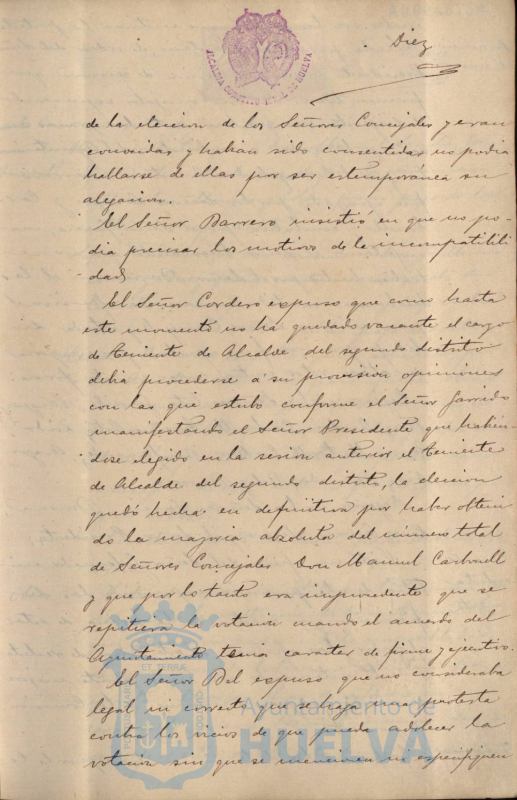 Diez
ALCALIA CONSTITUCIONAL DE HUELVA
de la eleccion de los Señores Concejales y eran
conocidas y habian sido consentidas no podia
hablarse de ellas por ser estemporánea su
alegacion.
El Señor Barrero insistió en que no po-
dia precisar los motivos de la incompatibili
dad
El Señor Cordero espuso que como hasta
este momento no ha quedado vacante el cargo
de Teniente de Alcalde del segundo distrito
debia procederse á su provisión opiniones
con las que estubo conforme el Señor Garrido
manifestando el Señor Presidente que habien-
dose elegido en la sesion anterior el Teniente
de Alcalde del segundo distrito, la eleccion
quedó hecha en definitiva por haber obteni
do la mayoria absoluta del número total
de Señores Concejales Don Manuel Carbonell
y que por lo tanto era improcedente que se
repitiera la votacion cuando el acuerdo del
Ayuntamiento tenia caracter de firme y ejecutivo.
El Señor Bel espuso que no consideraba
legal ni correcto que se haga una protesta
contra los vicios de que pueda adolecer la
votacion sin que se mencionen ni especifiquen
Ayuntamiento de
HUELVA